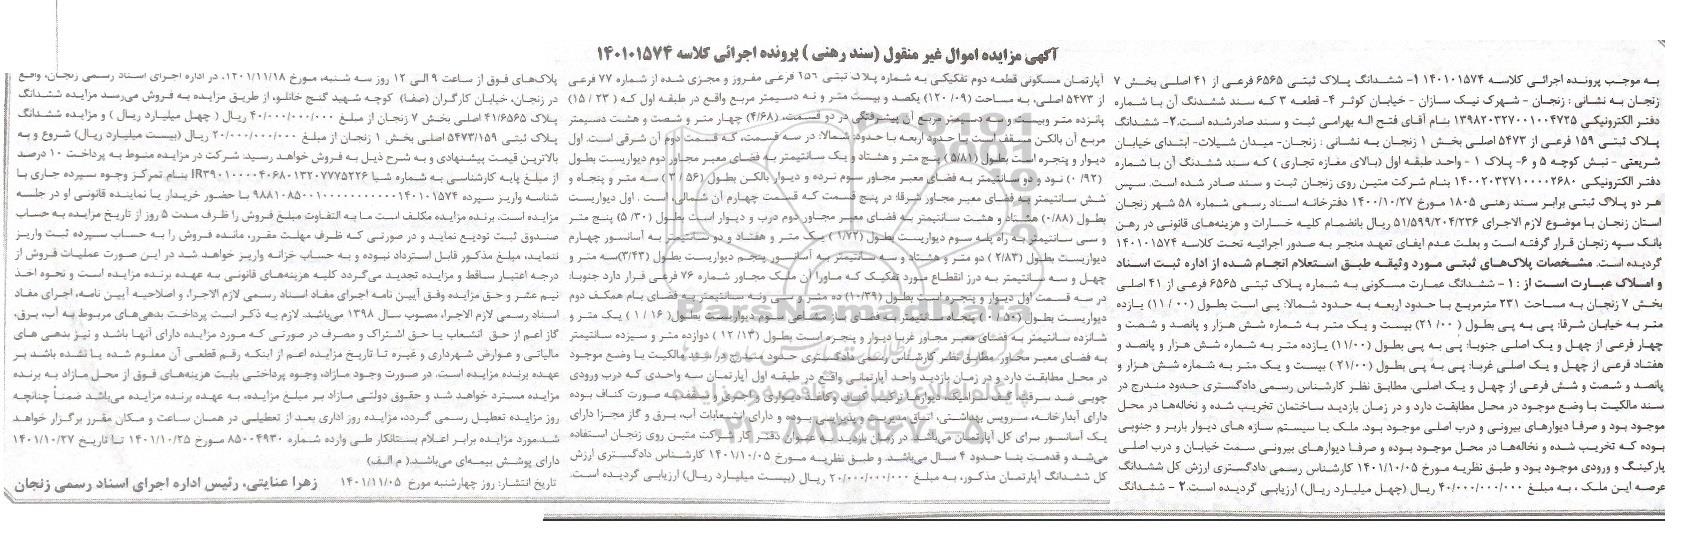 آگهی مزایده اموال غیر منقول (سند رهنی ) پرونده اجرائی کلاسه ۱۴۰۱۰۱۵۷۴
به موجب پرونده اجرائی کلاسه ۱۴۰۱۰۱۵۷۴ ۱- ششدانگ پلاک ثبتی ۶۵۶۵ فرعی از ۴۱ اصلی بخش ۷
زنجان به نشانی : زنجان - شهرک نیک سازان - خیابان کوثر ۴- قطعه ۳ که سند ششدنگ آن با شماره
دفتر الکترونیکی ۱۳۹۸۲۰۳۲۷۰۰۱۰۰۴۷۲۵ بنام آقای فتح اله بهرامی ثبت و سند صادرشده است.۲- ششدانگ
پلاک ثبتی ۱۵۹ فرعی از ۵۴۷۳ اصلی بخش ۱ زنجان به نشانی : زنجان- میدان شیلات- ابتدای خیابان
شریعتی - نبش کوچه ۵ و ۶- پلاک ۱ - واحد طبقه اول (بالای مغازه تجاری ) که سند ششدنگ آن با شماره
دفتر الکترونیکی ۱۴۰۰۲۰۳۲۷۱۰۰۰۰۲۶۸۰ بنام شرکت متین روی زنجان ثبت و سند صادر شده است. سپس
هر دو پلاک ثبتی برابر سند رهنی ۱۸۰۵ مورخ ۱۴۰۰/۱۰/۲۷ دفترخانه اسناد رسمی شماره ۵۸ شهر زنجان
استان زنجان با موضوع لازم الاجرای ۵۱/۵۹۹/۲۰۴/۲۳۶ ریال بانضمام کلیه خسارات و هزینه‌های قانونی در رهن
بانک سپه زنجان قرار گرفته است و بعلت عدم ایفای تعهد منجر به صدور اجرائیه تحت کلاسه ۱۴۰۱۰۱۵۷۴
گردیده است. مشخصات پلاک‌های ثبتی مورد وثیقه طبق استعلام انجام شده از اداره ثبت اسناد
و املاک عبارت است از : ۱ - ششدانگ عمارت مسکونی به شماره پلاک ثبتی ۶۵۶۵ فرعی از ۴۱ اصلی
بخش ۷ زنجان به مساحت ۲۳۱ مترمربع با حدود اربعه به حدود شمالا: پی است بطول (۱۱/۰۰ ) یازده
متر به خیابان شرقا: پی به پی بطول ( ۲۱/۰۰) بیست و یک متر به شماره شش هزار و پانصد و شصت و
چهار فرعی از چهل و یک اصلی جنوبا: پی به پی بطول (۱۱/۰۰) یازده متر به شماره شش هزار و پانصد و
هفتاد فرعی از چهل و یک اصلی غربا: پی به پی بطول (۲۱/۰۰ ) بیست و یک متر به شماره شش هزار و
پانصد و شصت و شش فرعی از چهل و یک اصلی. مطابق نظر کارشناس رسمی دادگستری حدود مندرج در
سند مالکیت با وضع موجود در محل مطابقت دارد و در زمان بازدید ساختمان تخریب شده و نخاله‌ها در محل
موجود بود و صرفا دیوارهای بیرونی و درب اصلی موجود بود. ملک با سیستم سازه های دیوار باربر و جنوبی
بوده که تخریب شده و نخاله‌ها در محل موجود بوده و صرفا دیوارهای بیرونی سمت خیابان و درب اصلی
پارکینگ و ورودی موجود بود و طبق نظریه مورخ ۱۴۰۱/۱۰/۰۵ کارشناس رسمی دادگستری ارزش کل ششدانگ
عرصه این ملک ، به مبلغ ۴۰/۰۰۰/۰۰۰/۰۰۰ ریال (چهل میلیارد ریال) ارزیابی گردیده است.۲ - ششدانگ
آپارتمان مسکونی قطعه دوم تفکیکی به شماره پلاک ثبتی ۱۵۹ فرعی مفروز و مجزی شده از شماره ۷۷ فرعی
از ۵۴۷۳ اصلی، به مساحت (۱۲۰/۰۹) یکصد و بیست متر و نه دسیمتر مربع واقع در طبقه اول که ( ۱۵/۲۳ )
پانزده متر وبیست و سه دسیمتر مربع آن پیشرفتگی در دو قسمت، (۴/۶۸) چهار متر و شصت و هشت دسیمتر
مربع آن بالکن مسقف است با حدود اربعه با حدود: شمالا: در سه قسمت، که قسمت دوم آن شرقی است. اول
دیوار و پنجره است بطول (۵/۸۱) پنج متر و هشتاد و یک سانتیمتر به فضای معبر مجاور دوم دیواریست بطول
(۰/۹۲) نود و دو سانتیمتر به فضای معبر مجاور سوم نرده و دیوار بالکن بطول (۳/۵۶ ) سه متر و پنجاه و
شش سانتیمتر به فضای معبر مجاور شرقا: در پنج قسمت که قسمت چهارم آن شمالی است . اول دیواریست
بطول (۰/۸۸) هشتاد و هشت سانتیمتر به فضای معبر مجاور دوم درب و دیوار است بطول (۵/۳۰) پنج متر
و سی سانتیمتر به راه پله سوم دیواریست بطول (۱/۷۲) یک متر و هفتاد و دو سانتیمتر به آسانسور چهارم
دیواریست بطول (۲/۸۳ ) دو متر و هشتاد و سه سانتیمتر به آسانسور پنجم دیواریست بطول (۳/۴۳)سه متر و
چهل و سه سانتیمتر به درز انقطاع مورد تفکیک که ماورا آن ملک مجاور شماره ۷۶ فرعی قرار دارد جنوبا:
در سه قسمت اول دیوار و پنجره است بطول (۱۰/۳۹) ده متر و سی ونه سانتیمتر به فضای بام همکف دوم
دیواریست بطول (۰/۵۰ ) پنجاه سانتیمتر به فضای ساز مشاعی سوم دیواریست بطول ( ۱/۱۶ ) یک متر و
شانزده سانتیمتر به فضای معبر مجاور غربا دیوار و پنجره است بطول (۱۲/۱۳ ) دوازده متر و سیزده سانتیمتر
به فضای معبر مجاور مطابق نظر کارشناس رسمی دادگستری حدود مندرج در سند مالکیت با وضع موجود
در محل مطابقت دارد و در زمان بازدید واحد آپارتمانی واقع در طبقه اول آپارتمان سه واحدی که درب ورودی
چوبی ضد سرقت، کف سرامیک دیوارها ترکیب گچ و کاغذ دیواری و بلوری و سقف به صورت کناف بوده
دارای آبدارخانه، سرویس بهداشتی، اتاق مدیریت و پذیرایی بوده و دارای انشعابات آب، برق و گاز مجزا دارای
یک آسانسور برای کل آپارتمان می‌باشد. در زمان بازدید به عنوان دفتر کار شرکت متین روی زنجان استفاده
می‌شد و قدمت بنا حدود ۴ سال می‌باشد. و طبق نظریه مورخ ۱۴۰۱/۱۰/۰۵ کارشناس دادگستری ارزش
کل ششدانگ آپارتمان مذکور، به مبلغ ۲۰/۰۰۰/۰۰۰/۰۰۰ ریال (بیست میلیارد ریال) ارزیابی گردیده است.
پلاک‌های فوق از ساعت ۹ الی ۱۲ روز سه شنبه، مورخ ۱۴۰۱/۱۱/۱۸، در اداره اجرای اسناد رسمی زنجان، واقع
در زنجان، خیابان کارگران (صفا) کوچه شهید گنج خانلو، از طریق مزایده به فروش می‌رسد مزایده ششدانگ
پلاک ۴۱/۶۵۶۵ اصلی بخش ۷ زنجان از مبلغ ۴۰/۰۰۰/۰۰۰/۰۰۰ ریال ( چهل میلیارد ریال ) و مزایده ششدانگ
پلاک ثبتی ۵۴۷۳/۱۵۹ اصلی بخش ۱ زنجان از مبلغ ۲۰/۰۰۰/۰۰۰/۰۰۰ ریال (بیست میلیارد ریال) شروع و به
بالاترین قیمت پیشنهادی و به شرح ذیل به فروش خواهد رسید: شرکت در مزایده منوط به پرداخت ۱۰ درصد
از مبلغ پایه کارشناسی به شماره شبا IR۳۹۰۱۰۰۰۰۴۰۶۸۰۱۳۲۰۷۷۷۵۲۲۶ بنام تمرکز وجوه سپرده جاری با
شناسه واریز سپرده ۹۸۸۱۰۸۵۰۰۱۰۰۰۰۰۰۰۰۰۰۱۴۰۱۰۱۵۷۴ با حضور خریدار یا نماینده قانونی او در جلسه
مزایده است. برنده مزایده مکلف است ما به التفاوت مبلغ فروش را ظرف مدت ۵ روز از تاریخ مزایده به حساب
صندوق ثبت تودیع نماید و در صورتی که ظرف مهلت مقرر، مانده فروش را به حساب سپرده ثبت واریز
ننماید، مبلغ مذکور قابل استرداد نبوده و به حساب خزانه واریز خواهد شد در این صورت عملیات فروش از
درجه اعتبار ساقط و مزایده تجدید می‌گردد کلیه هزینه‌های قانونی به عهده برنده مزایده است و نحوه اخذ
نیم عشر و حق مزایده وفق آیین نامه اجرای مفاد اسناد رسمی لازم الاجرا، و اصلاحیه آیین نامه، اجرای مفاد
اسناد رسمی لازم الاجرا، مصوب سال ۱۳۹۸ می‌باشد. لازم به ذکر است پرداخت بدهی‌های مربوط به آب، برق،
گاز اعم از حق انشعاب یا حق اشتراک و مصرف در صورتی که مورد مزایده دارای آنها باشد و نیز بدهی های
مالیاتی و عوارض شهرداری و غیره تا تاریخ مزایده اعم از اینکه رقم قطعی آن معلوم شده یا نشده باشد بر
عهده برنده مزایده است. در صورت وجود مازاد، وجوه پرداختی بابت هزینه‌های فوق از محل مازاد به برنده
مزایده مسترد خواهد شد و حقوق دولتی مازاد بر مبلغ مزایده، به عهده برنده مزایده می‌باشد ضمناً چنانچه
روز مزایده تعطیل رسمی گردد، مزایده روز اداری بعد از تعطیلی در همان ساعت و مکان مقرر برگزار خواهد
شد.مورد مزایده برابر اعلام بستانکار طی وارده شماره ۸۵۰۰۴۹۳۰ مورخ ۱۴۰۱/۱۰/۲۵ تا تاریخ ۱۴۰۱/۱۰/۲۷
دارای پوشش بیمه‌ای می‌باشد.( م الف)
تاریخ انتشار: روز چهارشنبه مورخ ۱۴۰۱/۱۱/۰۵ زهرا عنایتی، رئیس اداره اجرای اسناد رسمی زنجان
ParsNamadData
پایگاه اطلاع رسانی مناقصه و مزایده
۰۲۱-۸۸۳۴۹۶۷۰-۵